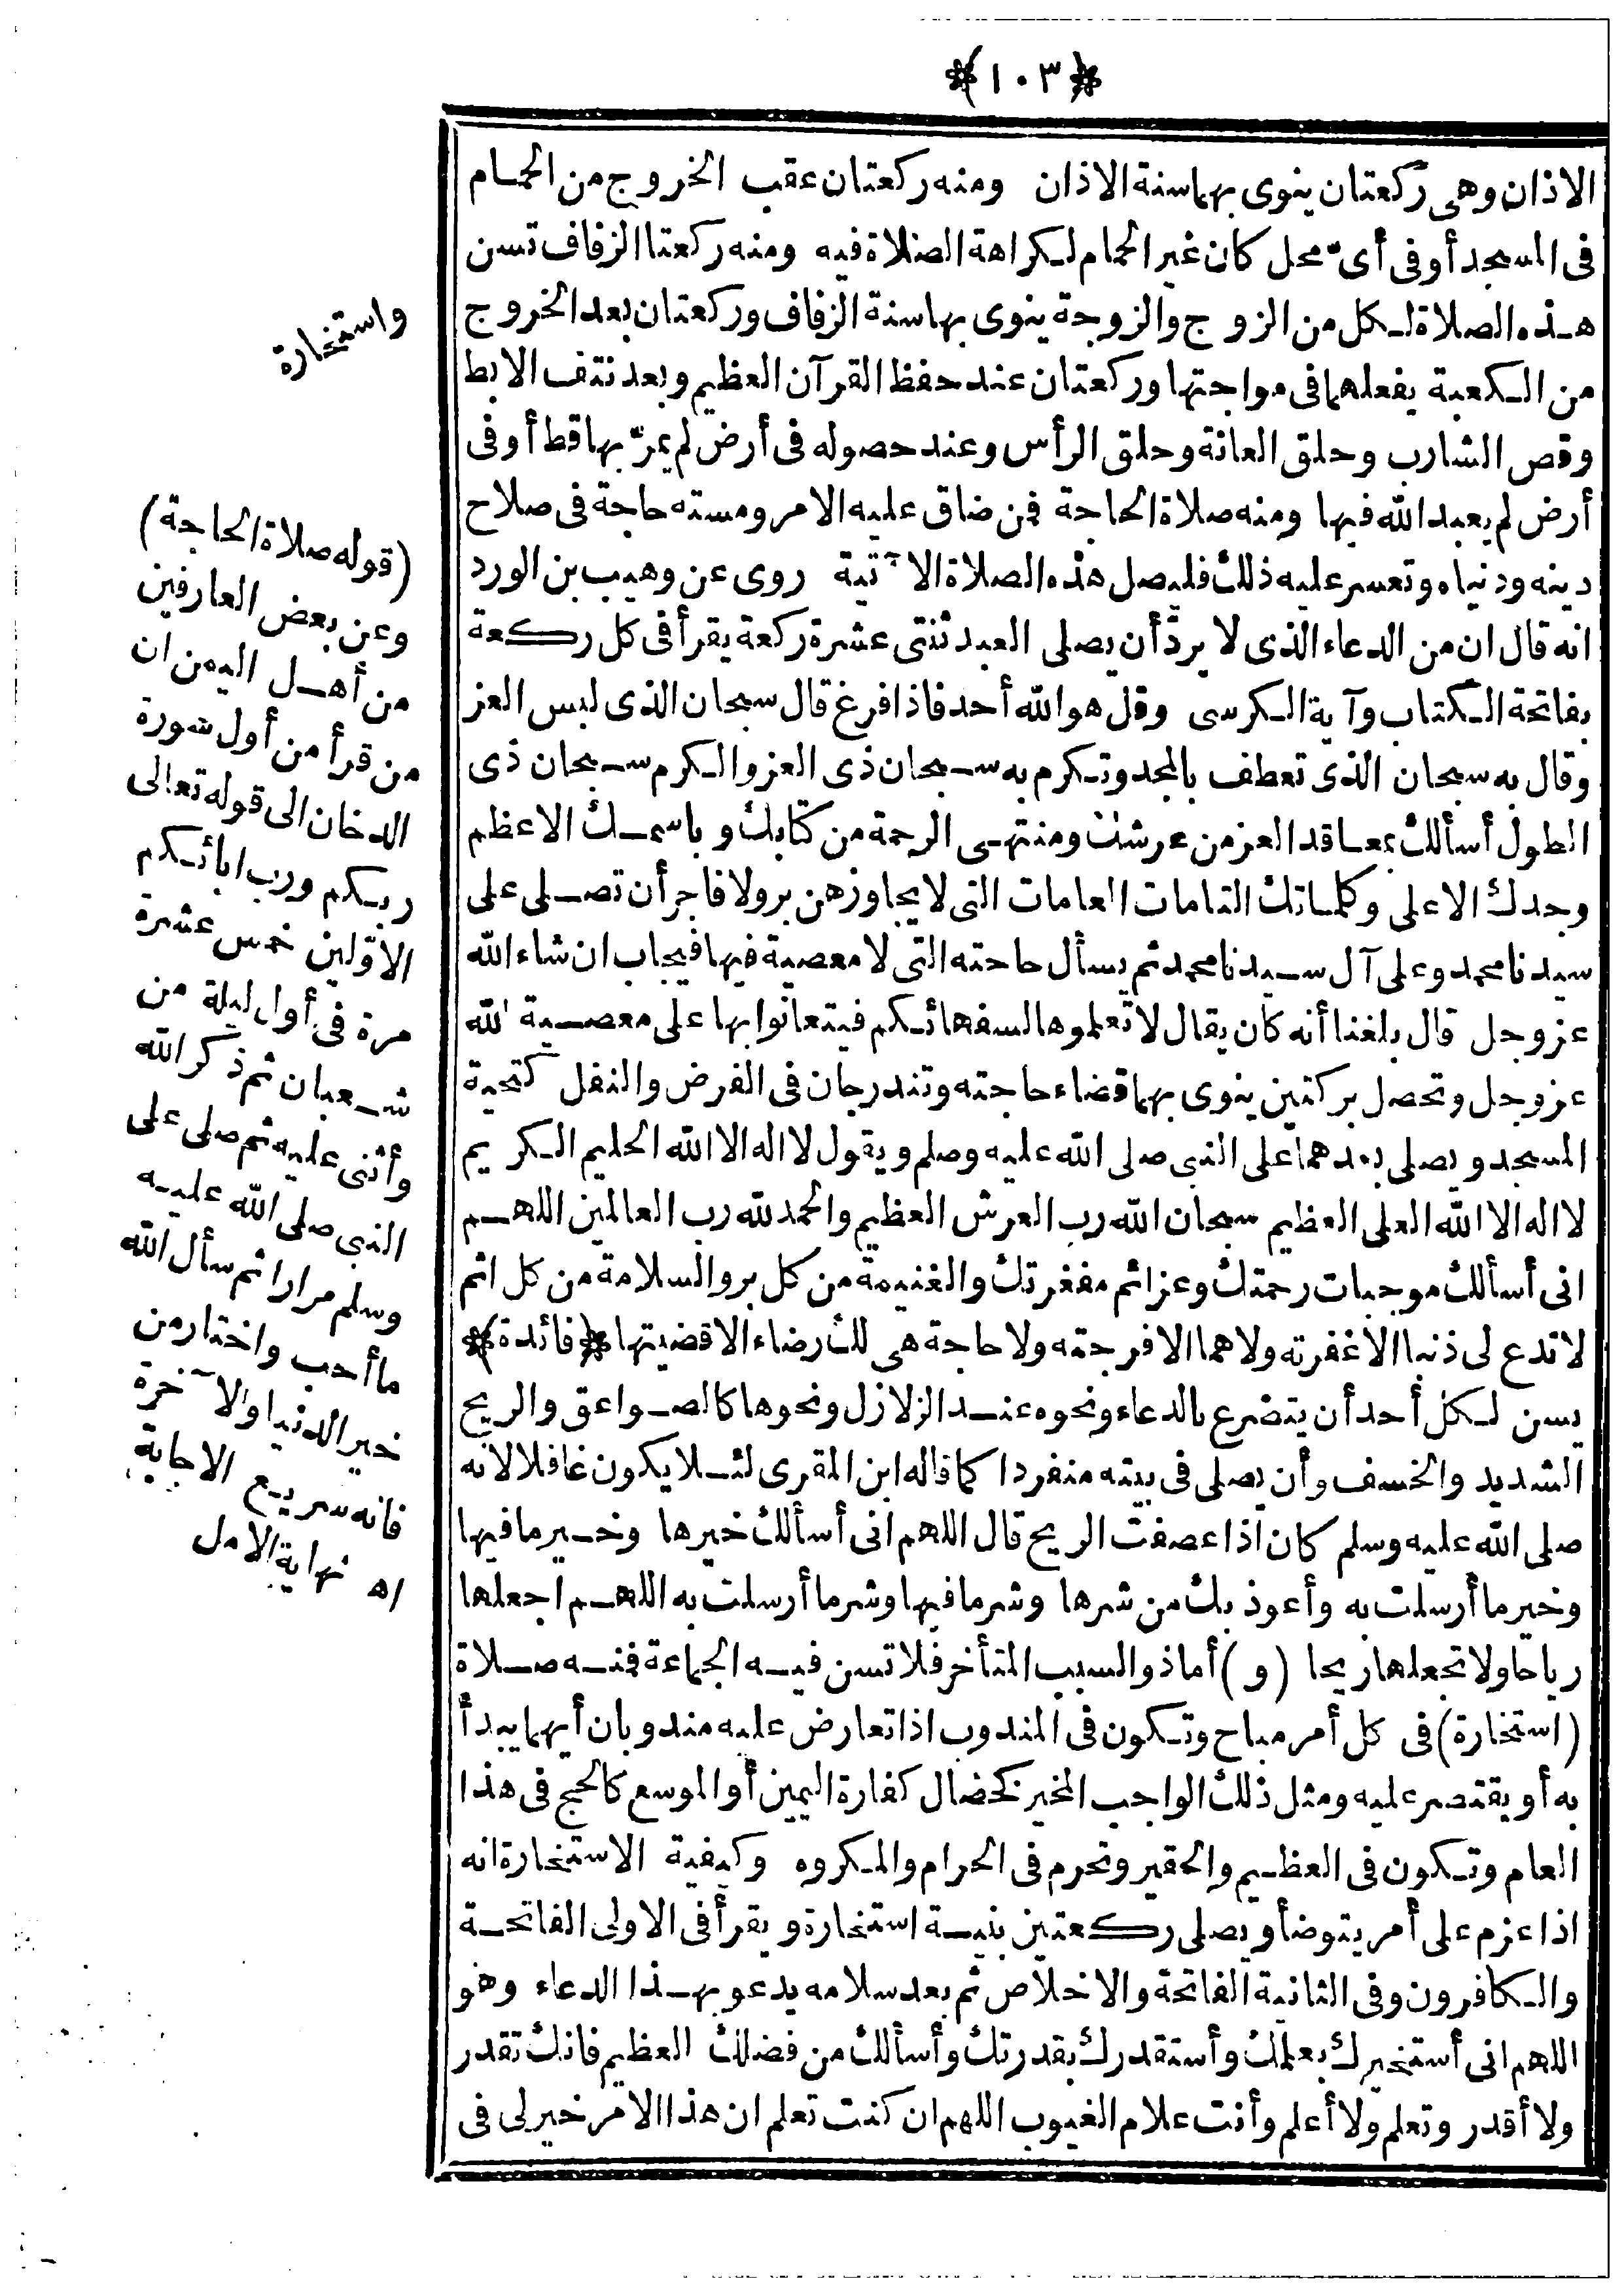 ﴿١٠٣﴾
الاذان وهى ركعتان ينوى بهما سنة الاذان ومنه ركعتان عقب الخروج من الحمام
فى المسجد أو فى أىّ محل كان غير الحمام لكراهة الصلاة فيه ومنه ركعتا الزفاف تسن
هذه الصلاة لكل من الزوج والزوجة ينوى بها سنة الزفاف وركعتان بعد الخروج
من الكعبة يفعلهما فى مواجتها وركعتان عند حفظ القرآن العظيم وبعد نتف الابط
وقص الشارب وحلق العانة وحلق الرأس وعند حصوله فى أرض لم يمرّ بها قط أو فى
أرض لم يعبد الله فيها ومنه صلاة الحاجة فمن ضاق عليه الامر ومسته حاجة فى صلاح
دينه ودنياه وتعسر عليه ذلك فليصل هذه الصلاة الآتية روى عن وهيب بن الورد
انه قال ان من الدعاء الذى لا يردّ أن يصلى العبد ثنتى عشرة ركعة يقرأ فى كل ركعة
بفاتحة الكتاب وآية الكرسى وقل هو الله أحد فاذا فرغ قال سبحان الذى لبس العز
وقال به سبحان الذى تعطف بالمجد وتكرم به سبحان ذى العز والكرم سبحان ذى
الطول أسألك بمعاقد العز من عرشك ومنتهى الرحمة من كتابك وباسمك الاعظم
وجدك الاعلى وكلماتك التامات العامات التى لا يجاوزهن بر ولا فاجر أن تصلى على
سيدنا محمد وعلى آل سيدنا محمد ثم يسأل حاجته التى لا معصية فيها فيجاب ان شاء الله
عز وجل قال بلغنا أنه كان يقال لا تعلموها لسفهائكم فيتعانوا بها على معصية الله
عز وجل وتحصل بركتين ينوى بهما قضاء حاجته وتندرجان فى الفرض والنفل كتحية
المسجد ويصلى بعدهما على النبى صلى الله عليه وصلم ويقول لا اله الا الله الحليم الكريم
لا اله الا الله العلى العظيم سبحان الله رب العرش العظيم والحمد لله رب العالمين اللهم
انى أسألك موجبات رحمتك وعزائم مغفرتك والغنيمة من كل بر والسلامة من كل اثم
لا تدع لى ذنبا الا غفرته ولا هما الا فرجته ولا حاجة هى لك رضاء الا قضيتها ﴿فائدة﴾
يسن لكل أحد أن يتضرع بالدعاء ونحوه عند الزلازل ونحوها كالصواعق والريح
الشديد والخسف وأن يصلى فى بيته منفردا كما قاله ابن المقرى لئلا يكون غافلا لانه
صلى الله عليه وسلم كان اذا عصفت الريح قال اللهم انى أسألك خيرها وخير ما فيها
وخير ما أرسلت به وأعوذ بك من شرها وشر ما فيها وشر ما أرسلت به اللهم اجعلها
رياحا ولا تجعلها ريحا (و) أما ذو السبب المتأخر فلا تسن فيه الجماعة فمنه صلاة
(استخارة) فى كل أمر مباح وتكون فى المندوب اذا تعارض عليه مندوبان أيهما يبدأ
به أو يقتصر عليه ومثل ذلك الواجب المخير كخصال كفارة اليمين أو الموسع كالحج فى هذا
العام وتكون فى العظيم والحقير وتحرم فى الحرام والمكروه وكيفية الاستخارة انه
اذا عزم على أمر يتوضأ ويصلى ركعتين بنية استخارة ويقرأ فى الاولى الفاتحة
والكافرون وفى الثانية الفاتحة والاخلاص ثم بعد سلامه يدعو بهذا الدعاء وهو
اللهم انى أستخيرك بعلمك وأستقدرك بقدرتك وأسألك من فضلك العظيم فانك تقدر
ولا أقدر وتعلم ولا أعلم وأنت علام الغيوب اللهم ان كنت تعلم ان هذا الامر خير لى فى
واستخارة
(قوله صلاة الحاجة)
وعن بعض العارفين
من أهل اليمن ان
من قرأ من أول سورة
الدخان الى قوله تعالى
ربكم ورب ابائكم
الاوّلين خمس عشرة
مرة فى أول ليلة من
شعبان ثم ذكر الله
وأثنى عليه ثم صلى على
النبى صلى الله عليه
وسلم مرارا ثم سأل الله
ما أحب واختار من
خير الدنيا والآخرة
فانه سريع الاجابة
اه نهاية الامل